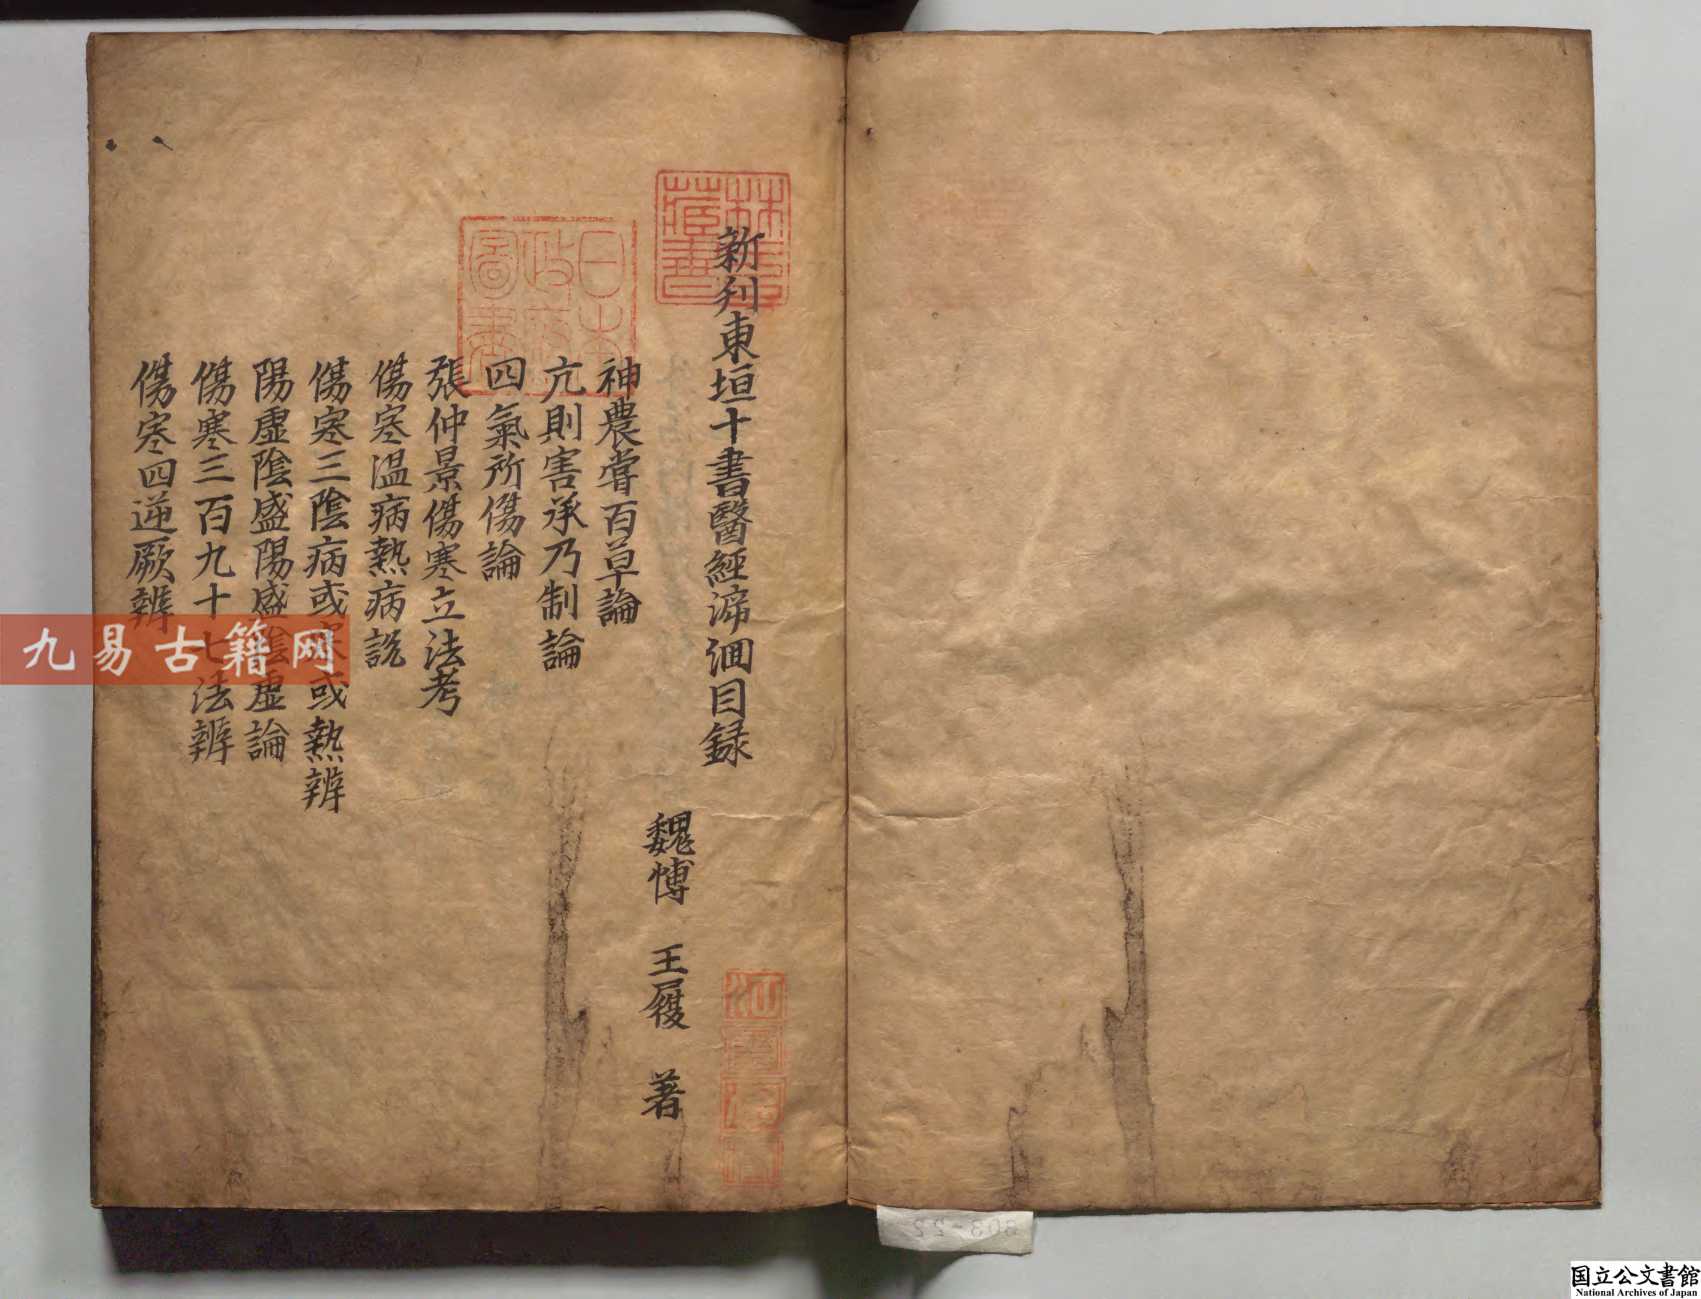 新刋東垣十書醫經溯洄目録
魏愽　王履　著
神農嘗百草論
亢則害承乃制論
四氣所傷論
張仲景傷寒立法考
傷寒温病熱病説
傷寒三陰病或寒或熱辨
陽虛陰盛陽盛陰虛論
傷寒三百九十七法辨
傷寒四逆厥辨
林氏藏書
日本政府圖書
九易古籍网
303-22
国立公文書館
National Archives of Japan